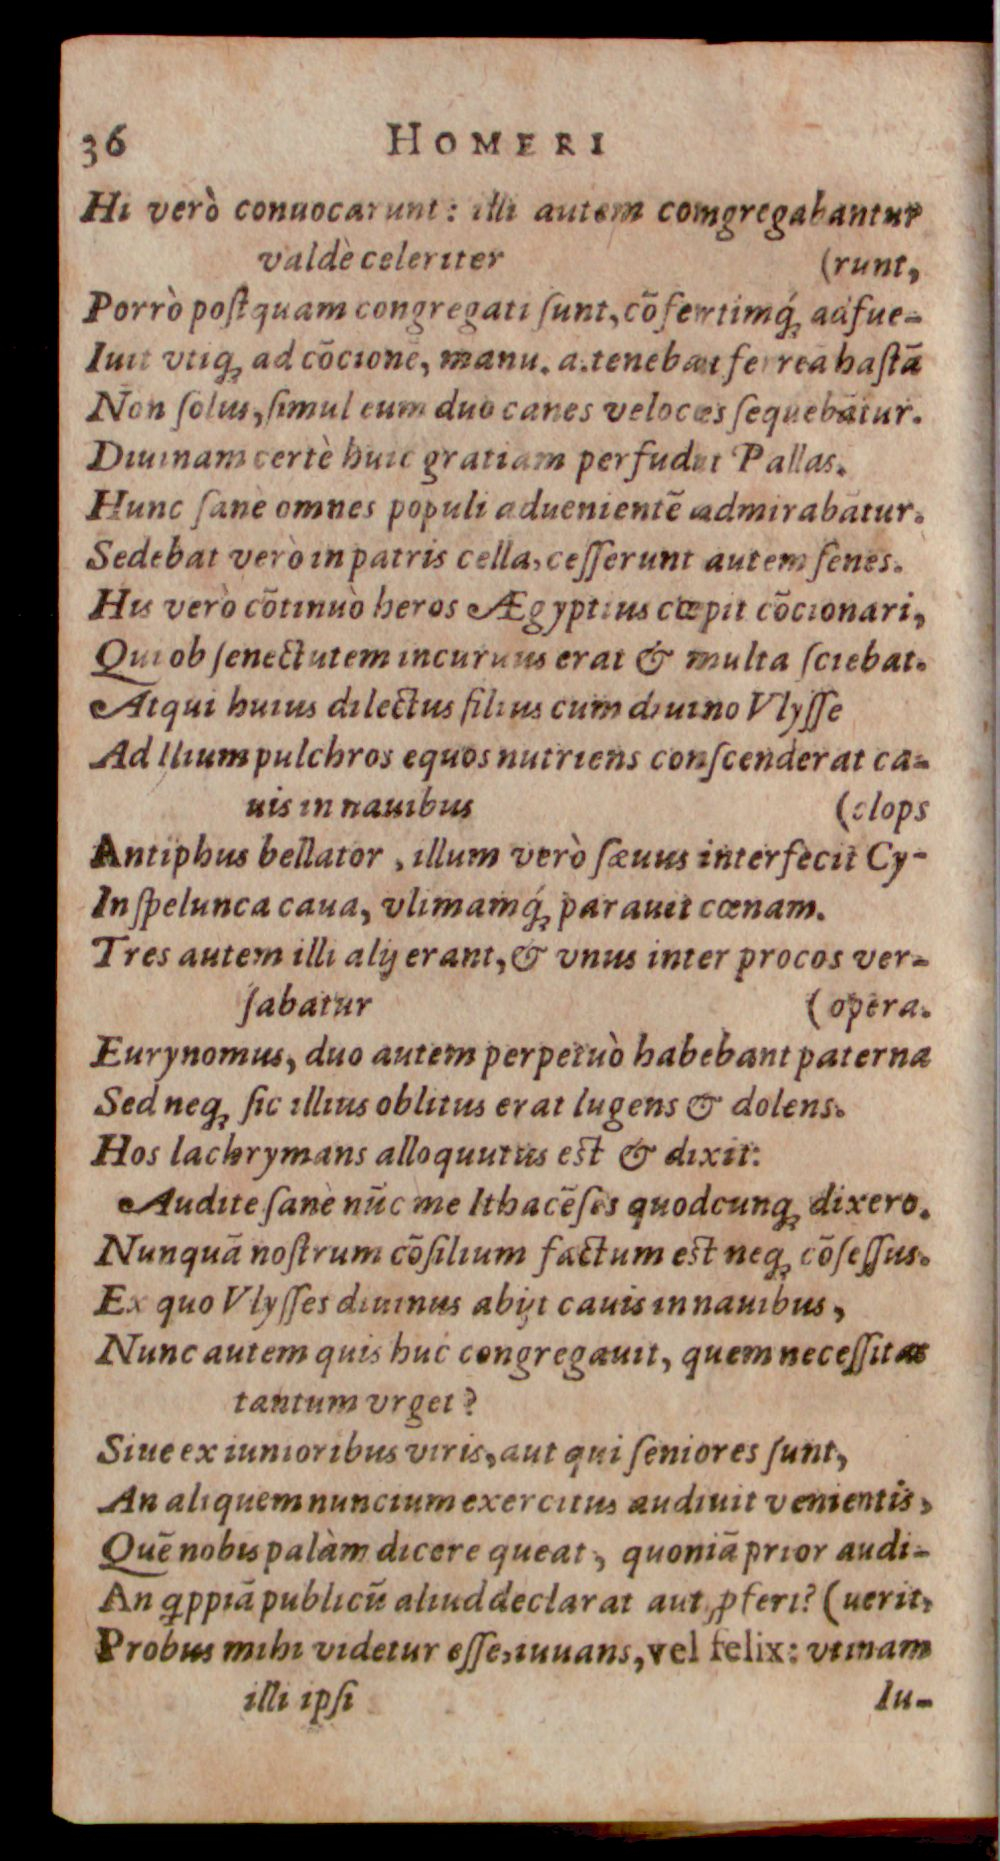 36 HOMERI
Hi verò conuocarunt: illi autem comgregabantur
valdè celeriter (runt,
Porrò postquam congregati sunt, cōfertimq́; adfue-
Iuit vtiq; ad cōcionē, manu. a. tenebat ferreā hastā
Non solus, simul eum duo canes veloces sequebātur.
Diuinam certè huic gratiam perfudit Pallas.
Hunc sanè omnes populi aduenientē admirabātur.
Sedebat verò in patris cella, cesserunt autem senes.
His verò cōtinuò heros Ægyptius cœpit cōcionari,
Qui ob senectutem incuruus erat & multa sciebat.
Atqui huius dilectus filius cum diuino Vlysse
Ad Ilium pulchros equos nutriens conscenderat ca-
uis in nauibus (clops
Antiphus bellator, illum verò sæuus interfecit Cy-
In spelunca caua, vlimamq́; parauit cœnam.
Tres autem illi alij erant, & vnus inter procos ver-
sabatur (opera.
Eurynomus, duo autem perpetuò habebant paterna
Sed neq; sic illius oblitus erat lugens & dolens.
Hos lachrymans alloquutus est & dixit:
Audite sanè nūc me Ithacēses quodcunq; dixero.
Nunquā nostrum cōsilium factum est neq; cōsessus.
Ex quo Vlysses diuinus abijt cauis in nauibus,
Nunc autem quis huc congregauit, quem necessitas
tantum vrget?
Siue ex iunioribus viris, aut qui seniores sunt,
An aliquem nuncium exercitus audiuit venientis,
Quē nobis palàm dicere queat, quoniā prior audi-
An qppiā publicū aliud declarat aut ꝓfert? (uerit,
Probus mihi videtur esse, iuuans, vel felix: vtinam
illi ipsi Iu-